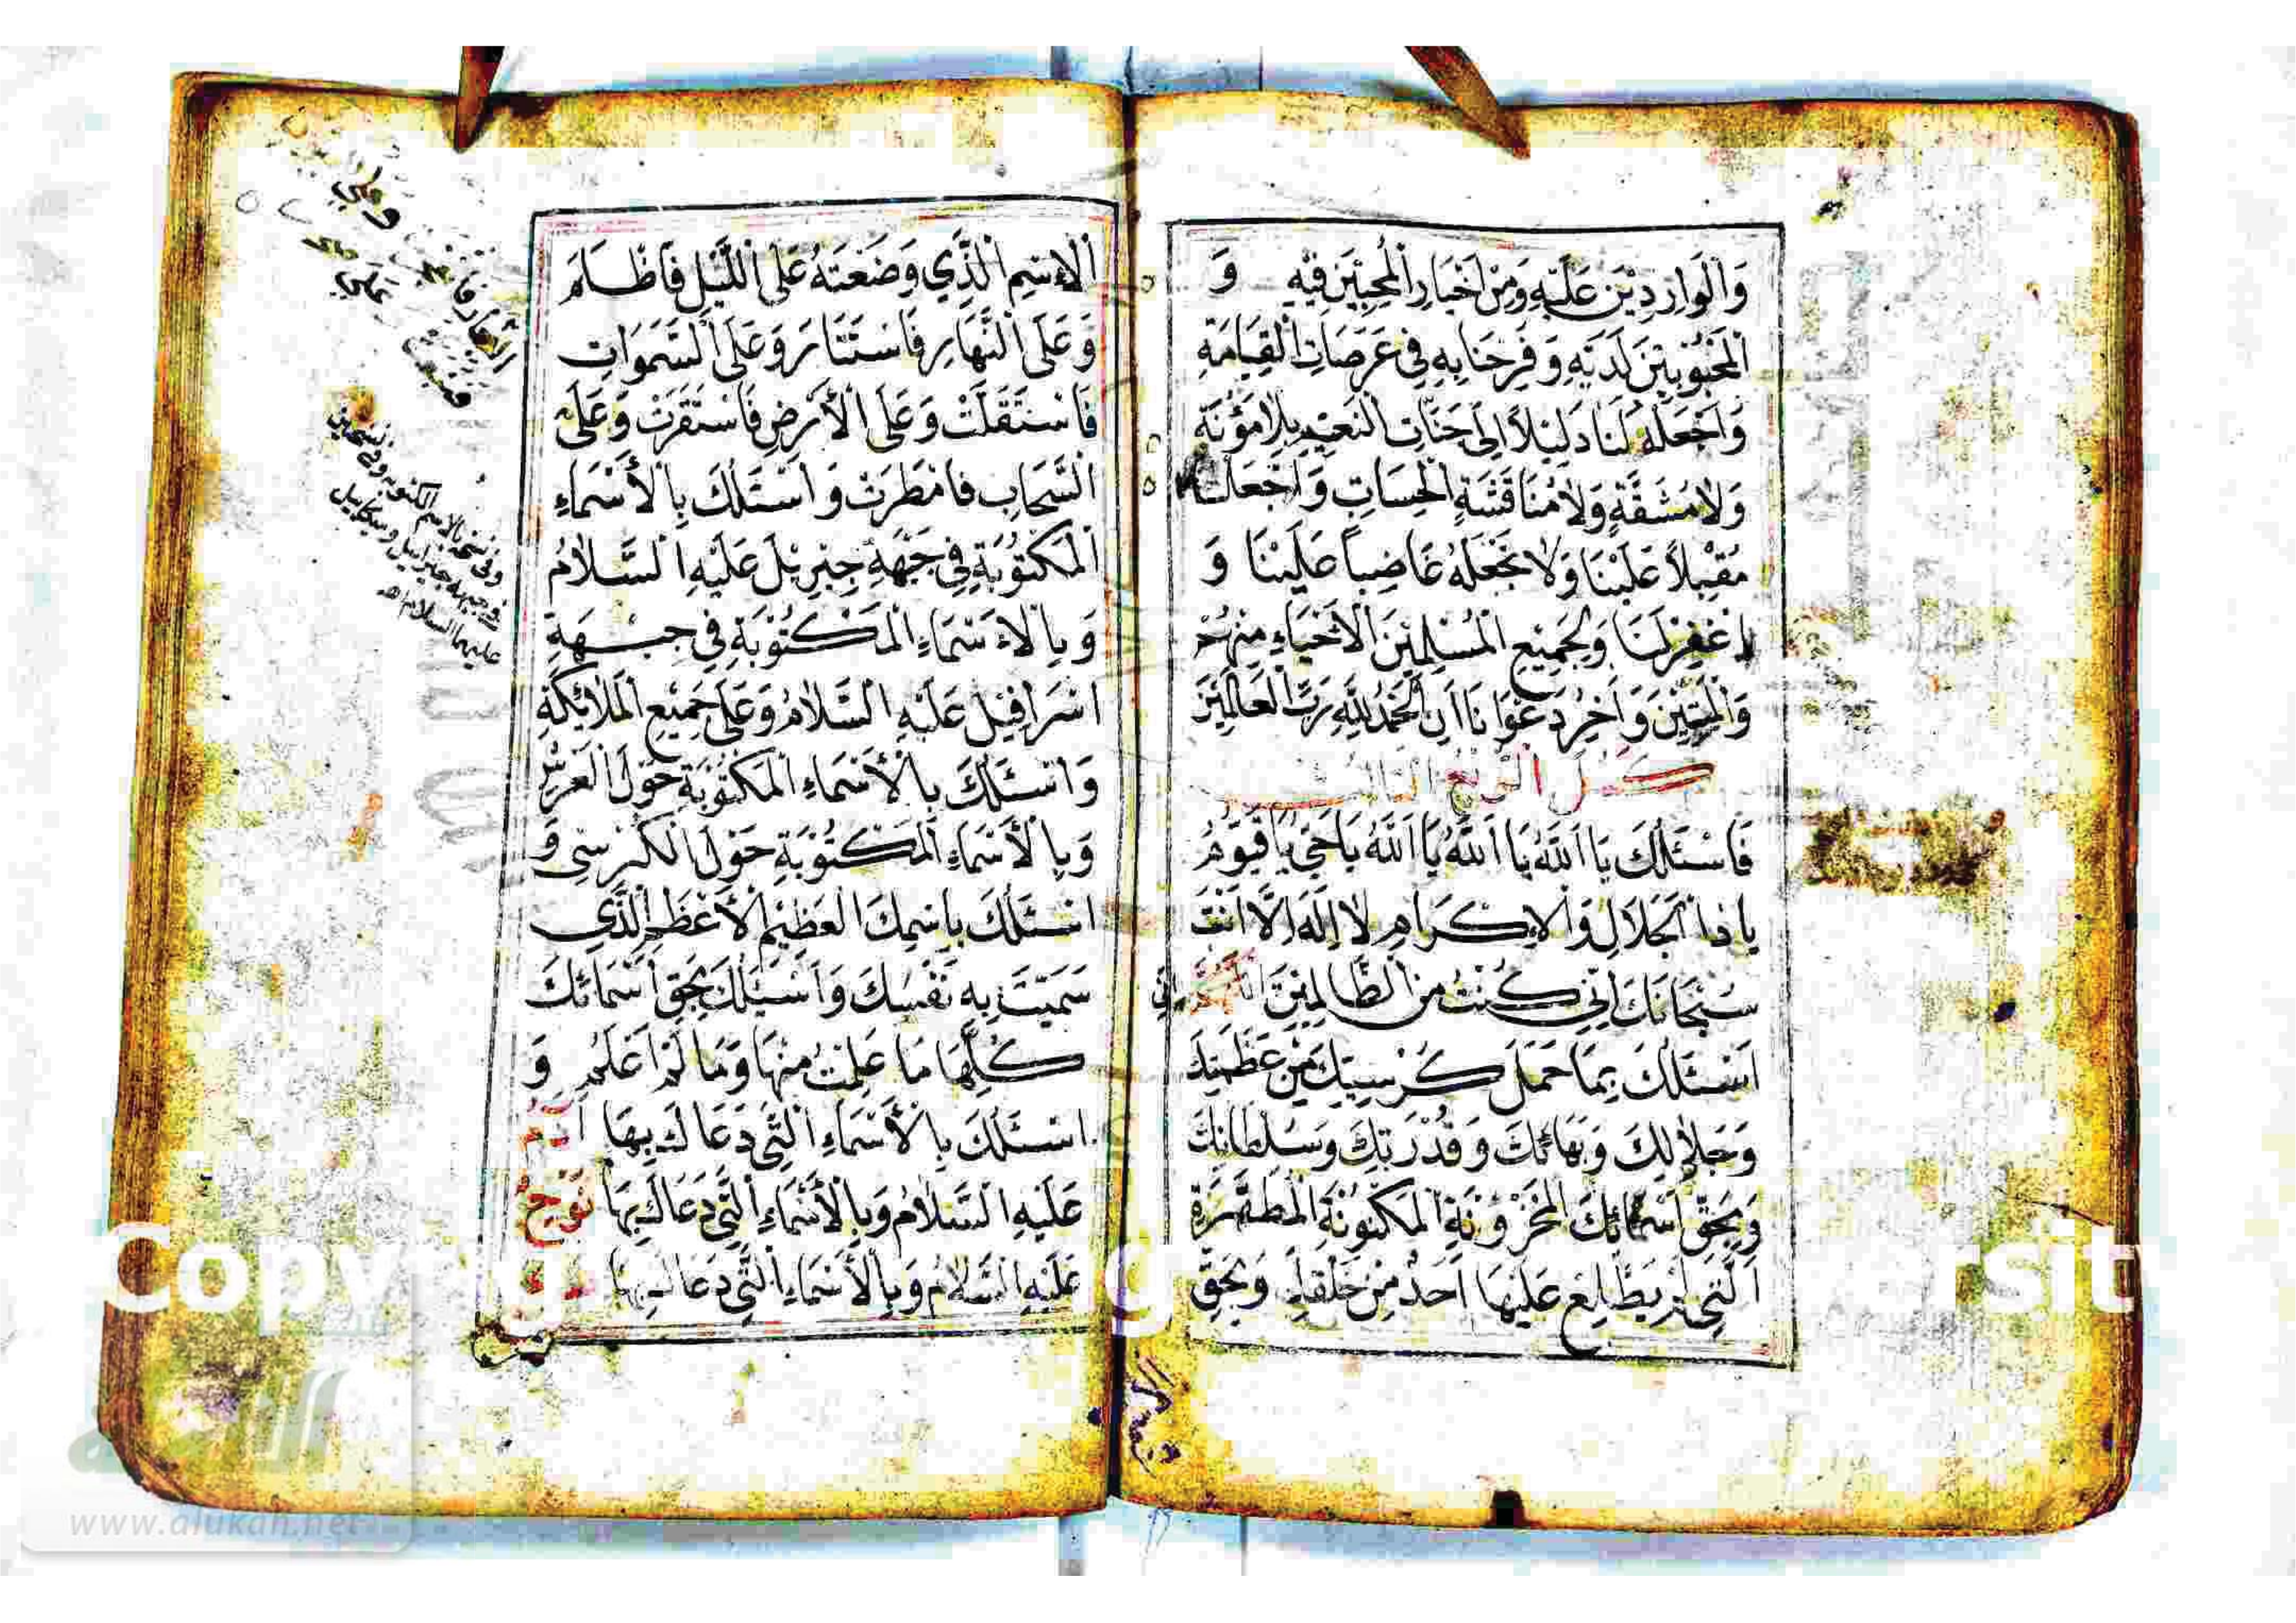 وَالْوَارِدِيْنَ عَلَيْهِ وَمِنْ اَخْيَارِ الْمُحِبِّيْنَ فِيْهِ وَ
الْمَحْبُوْبِيْنَ لَدَيْهِ وَفَرِّحْنَا بِهِ فِي عَرَصَاتِ الْقِيَامَةِ
وَاجْعَلْهُ لَنَا دَلِيْلاً اِلَى جَنَّاتِ النَّعِيْمِ بِلاَ مَؤُنَةٍ
وَلاَ مَشَقَّةٍ وَلاَ مُنَاقَشَةِ الْحِسَابِ وَاجْعَلْهُ
مُقْبِلاً عَلَيْنَا وَلاَ تَجْعَلْهُ غَاضِباً عَلَيْنَا وَ
اغْفِرْ لَنَا وَلِجَمِيْعِ الْمُسْلِمِيْنَ الْاَحْيَاءِ مِنْهُمْ
وَالْمَيِّتِيْنَ وَاٰخِرُ دَعْوَانَا اَنِ الْحَمْدُ لِلّٰهِ رَبِّ الْعَالَمِيْنَ
فَاَسْئَلُكَ يَا اَللهُ يَا اَللهُ يَا اَللهُ يَا حَيُّ يَا قَيُّوْمُ
يَا ذَا الْجَلَالِ وَالْاِكْرَامِ لَا اِلٰهَ اِلَّا اَنْتَ
سُبْحَانَكَ اِنِّي كُنْتُ مِنَ الظَّالِمِيْنَ اِنِّي
اَسْئَلُكَ بِمَا حَمَلَ كُرْسِيُّكَ مِنْ عَظَمَتِكَ
وَجَلَالِكَ وَبَهَائِكَ وَقُدْرَتِكَ وَسُلْطَانِكَ
وَبِحَقِّ اَسْمَائِكَ الْمَخْزُوْنَةِ الْمَكْنُوْنَةِ الْمُطَهَّرَةِ
الَّتِي لَمْ يَطَّلِعْ عَلَيْهَا اَحَدٌ مِنْ خَلْقِكَ وَبِحَقِّ
الْاِسْمِ الَّذِي وَضَعْتَهُ عَلَى اللَّيْلِ فَاَظْلَمَ
وَعَلَى النَّهَارِ فَاسْتَنَارَ وَعَلَى السَّمَوَاتِ
فَاسْتَقَلَّتْ وَعَلَى الْاَرْضِ فَاسْتَقَرَّتْ وَعَلَى
السَّحَابِ فَامْطَرَتْ وَاَسْئَلُكَ بِالْاَسْمَاءِ
الْمَكْتُوْبَةِ فِي جَبْهَةِ جِبْرِيْلَ عَلَيْهِ السَّلاَمُ
وَبِالْاَسْمَاءِ الْمَكْتُوْبَةِ فِي جَبْهَةِ
اِسْرَافِيْلَ عَلَيْهِ السَّلاَمُ وَعَلَى جَمِيْعِ الْمَلاَئِكَةِ
وَاَسْئَلُكَ بِالْاَسْمَاءِ الْمَكْتُوْبَةِ حَوْلَ الْعَرْشِ
وَبِالْاَسْمَاءِ الْمَكْتُوْبَةِ حَوْلَ الْكُرْسِي وَ
اَسْئَلُكَ بِاسْمِكَ الْعَظِيْمِ الْاَعْظَمِ الَّذِي
سَمَّيْتَ بِهِ نَفْسَكَ وَاَسْئَلُكَ بِحَقِّ اَسْمَائِكَ
كُلِّهَا مَا عَلِمْتُ مِنْهَا وَمَا لَمْ اَعْلَمْ وَ
اَسْئَلُكَ بِالْاَسْمَاءِ الَّتِي دَعَاكَ بِهَا اٰدَمُ
عَلَيْهِ السَّلاَمُ وَبِالْاَسْمَاءِ الَّتِي دَعَاكَ بِهَا نُوْحٌ
عَلَيْهِ السَّلاَمُ وَبِالْاَسْمَاءِ الَّتِي دَعَاكَ بِهَا
وفي نسخة بالاسم المكتوب
جبهة جبرائيل وميكاييل
عليهما السلام اهـ
www.alukah.net